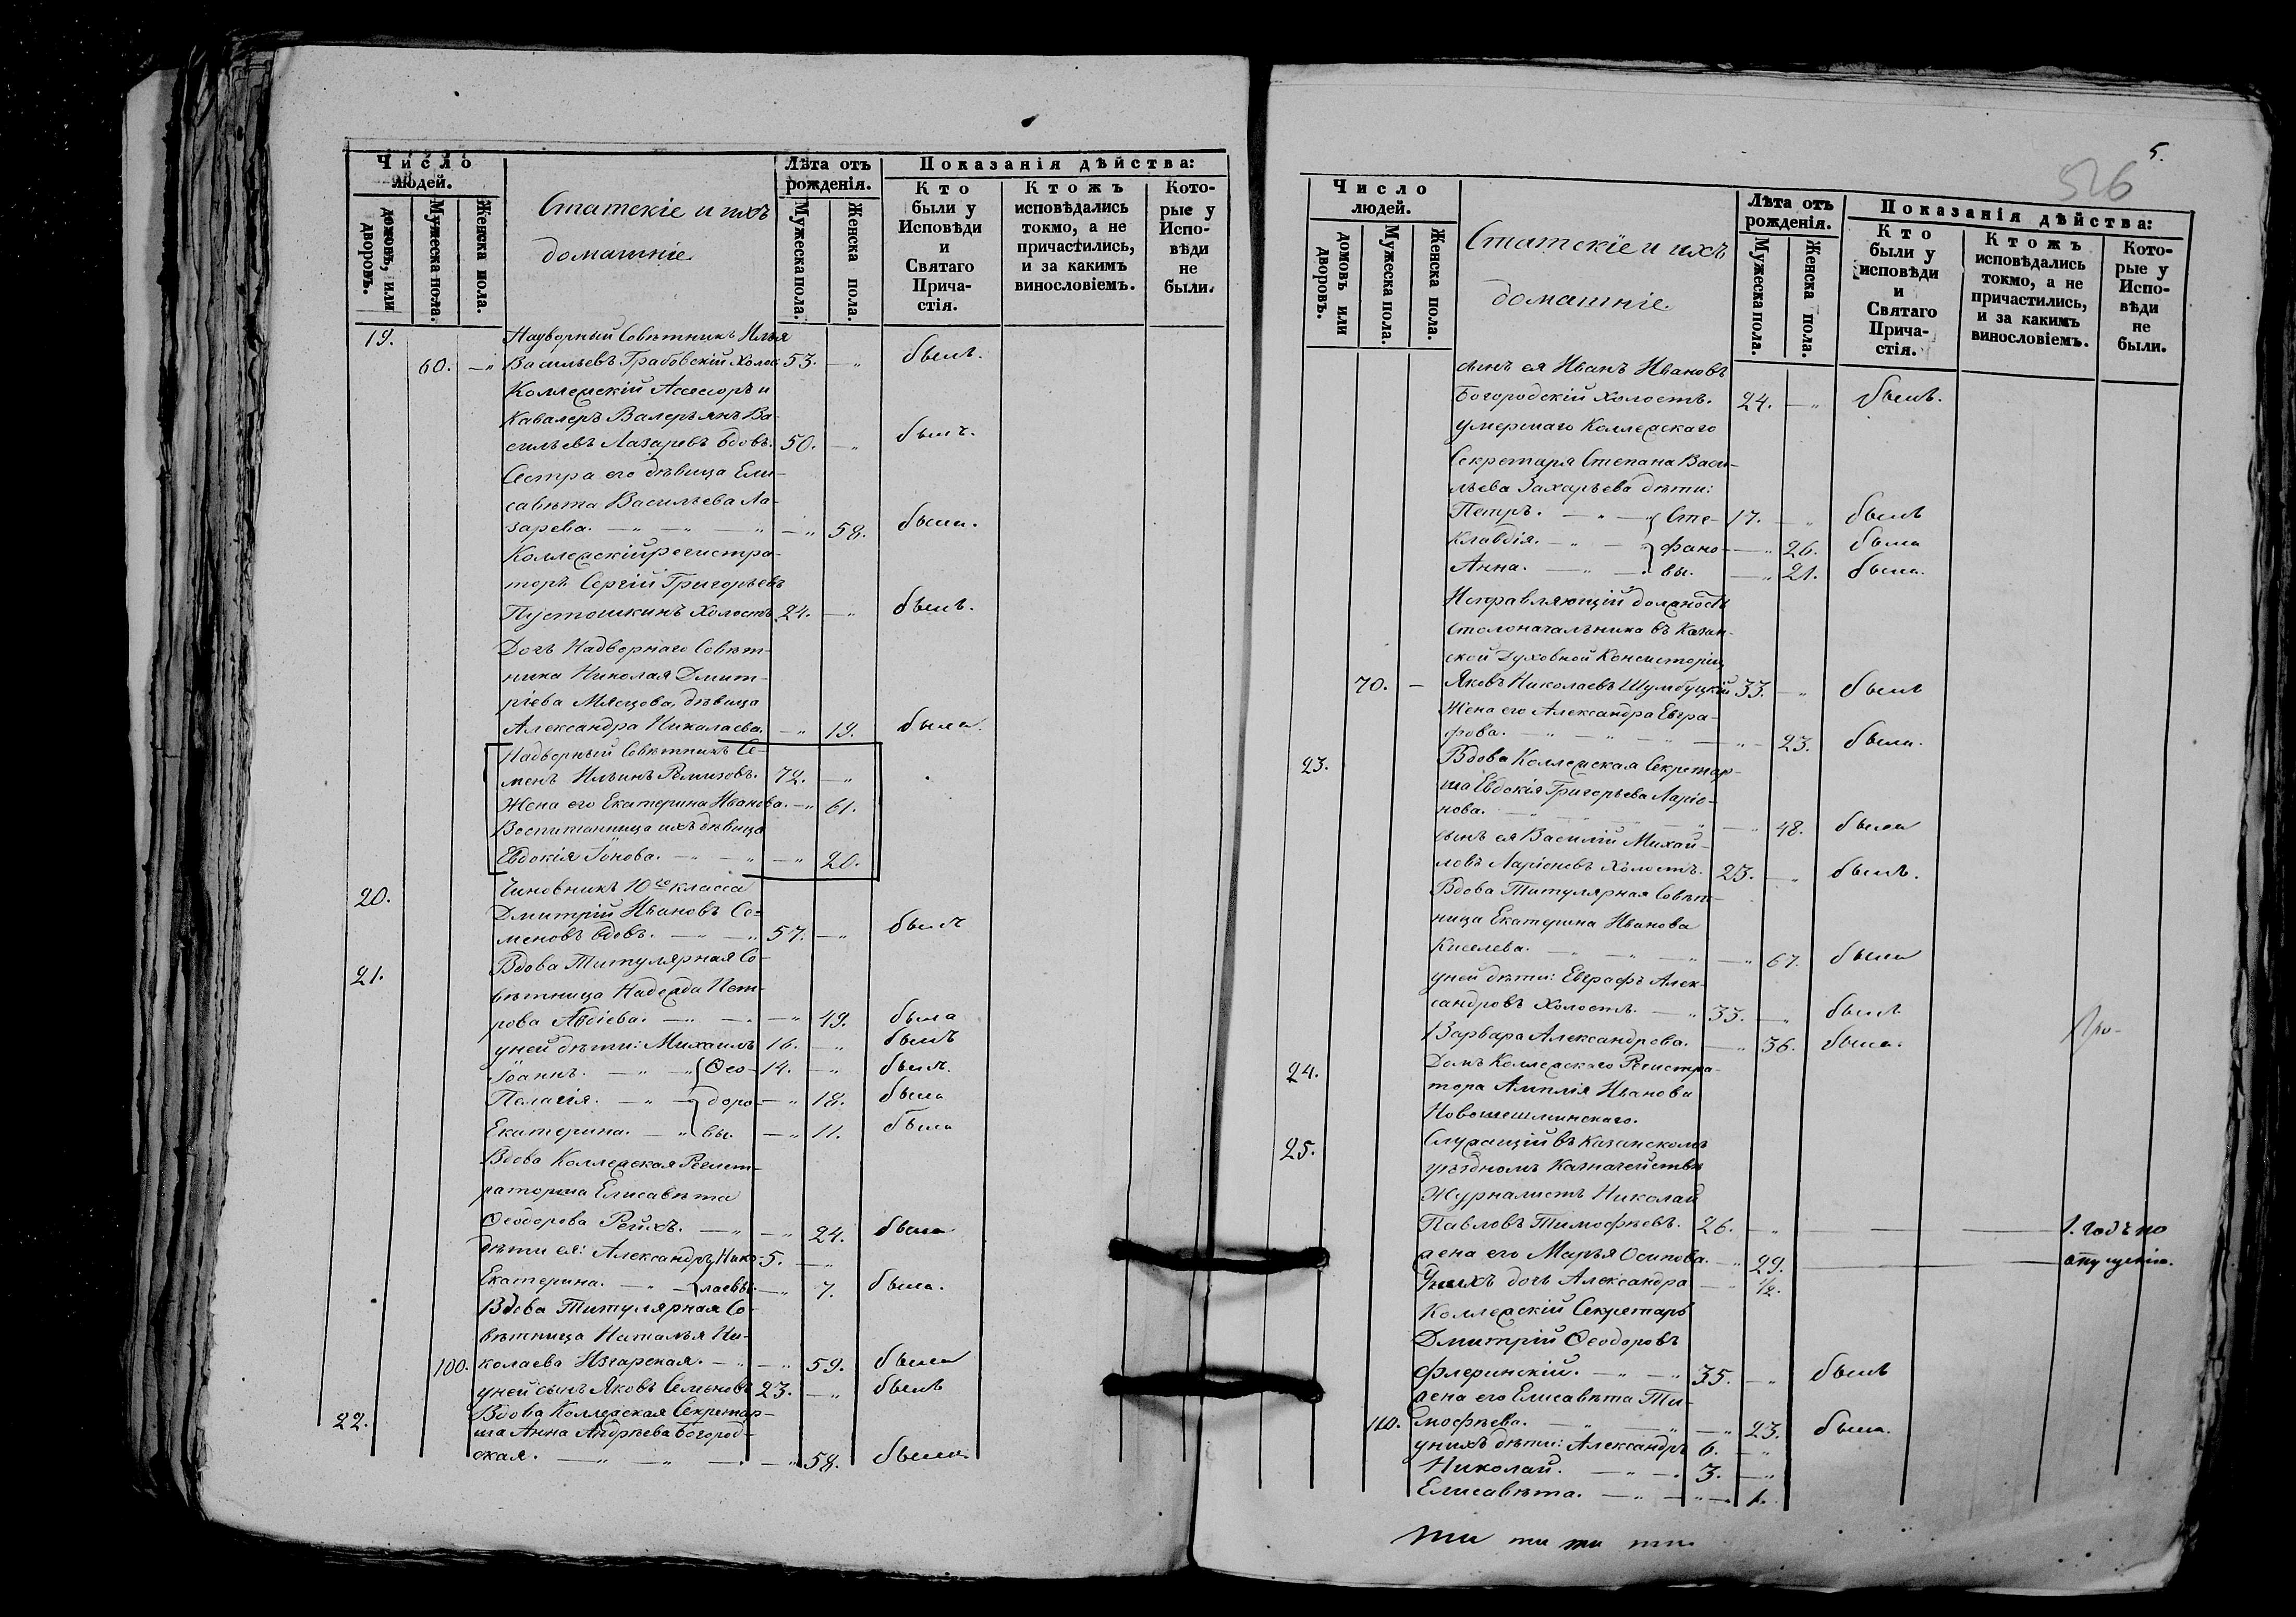 Число людей.
домовъ, или дворовъ.
Мужеска пола.
Женска пола.
Статскіе и ихъ
домашніе
Лѣта отъ рожденія.
Мужеска пола.
Женска пола.
Показанія дѣйства:
Кто были у Исповѣди и Святаго Прича-стія.
Ктожъ исповѣдались токмо, а не причастились, и за какимъ винословіемъ.
Кото-рые у Испо-вѣди не были.
19. Надворный Совѣтникъ Илья
60. —„ Васильевъ Грабовскій Холос 53. —„ былъ.
Коллежскій Асессоръ и
Кавалеръ Валерьянъ Ва-
сильевъ Лазаревъ вдовъ. 50. —„ былъ.
Сестра его дѣвица Ели-
савѣта Васильева Ла-
зарева. —„ —„ —„ —„ 58. была.
Коллежскій регистра-
торъ Сергій Григорьевъ
Пустошкинъ Холостъ 24. —„ былъ.
Дочь Надворнаго Совѣт-
ника Николая Дмит-
ріева Мясцова, дѣвица
Александра Николаева. —„ 19. была.
Надворный Совѣтникъ Се-
менъ Ильинъ Ремизовъ. 72. —„
Жена его Екатерина Иванова. —„ 61.
Воспитанница ихъ дѣвица
Евдокія Іонова. —„ —„ —„ 20.
20. Чиновникъ 10го класса
Дмитрій Ивановъ Се-
меновъ вдовъ. —„ —„ 57. —„ былъ
21. Вдова Титулярная Со-
вѣтница Надежда Пет-
рова Авдіева. —„ —„ —„ 49. была
у ней дѣти: Михаилъ 16. —„ былъ
Іоаннъ. —„ —„ { Ѳео- 14. —„ былъ.
Пелагія. —„ — доро- —„ 18. была
Екатерина. —„ вы. —„ 11. была
Вдова Коллежская Регист-
раторша Елисавѣта
Ѳеодорова Рейхъ. —„ —„ 24. была
дѣти ея: Александръ Нико- 5. —„
Екатерина. —„ { лаевы. —„ 7. была.
Вдова Титулярная Со-
вѣтница Наталья Ни-
100. колаева Изгарская. —„ —„ 59. была
у ней сынъ Яковъ Семеновъ 23. —„ былъ
22. Вдова Коллежская Секретар-
ша Анна Андрѣева Богород-
ская. —„ —„ — —„ 58. была.
5.
526
Число людей.
домовъ или дворовъ.
Мужеска пола.
Женска пола.
Статскіе и ихъ
домашніе
Лѣта отъ рожденія.
Мужеска пола.
Женска пола.
Показанія дѣйства:
Кто были у исповѣди и Святаго Прича-стія.
Ктожъ исповѣдались токмо, а не причастились, и за какимъ винословіемъ.
Кото-рые у Испо-вѣди не были.
сынъ ея Иванъ Ивановъ
Богородскій Холостъ. 24. —„ былъ.
умершаго Коллежскаго
Секретаря Степана Васи-
льева Захарьева дѣти:
Петръ. —„ —„ { Сте- 17. —„ былъ
Клавдія. —„ — фано- —„ 26. была
Анна. —„ — вы. —„ 21. была.
Исправляющій должность
Столоначальника въ Казан-
ской Духовной Консисторіи
70. — Яковъ Николаевъ Шумбуцкій 33. —„ былъ
Жена его Александра Евгра-
фова. —„ —„ —„ —„ 23. была.
23. Вдова Коллежская Секретар-
ша Евдокія Григорьева Ларіо-
нова. —„ —„ —„ —„ 48. была
сынъ ея Василій Михай-
ловъ Ларіоновъ Холостъ. 23. —„ былъ.
Вдова Титулярная Совѣт-
ница Екатерина Иванова
Киселева. —„ —„ —„ —„ 67. была
у ней дѣти: Евграфъ Алек-
сандровъ Холостъ. —„ 33. — былъ
Варвара Александрова. —„ 36. была.
24. Домъ Коллежскаго Регистра-
тора Амплія Иванова
Новошешминскаго.
25. Служащій въ Казанскомъ
уѣздномъ Казначействѣ
Журналистъ Николай
Павловъ Тимофѣевъ. 26. —„ — — 1. годъ по
жена его Марья Осипова. —„ 29. — — опущенію.
У нихъ дочь Александра —„ 1/2.
Коллежскій Секретарь
Дмитрій Ѳеодоровъ
Флеринскій. —„ —„ 35. —„ былъ
жена его Елисавѣта Ти-
110. мофѣева. —„ —„ —„ 23. была.
у нихъ дѣти: Александръ 6. —„
Николай. —„ — 3. —„
Елисавѣта. —„ —„ — 1.